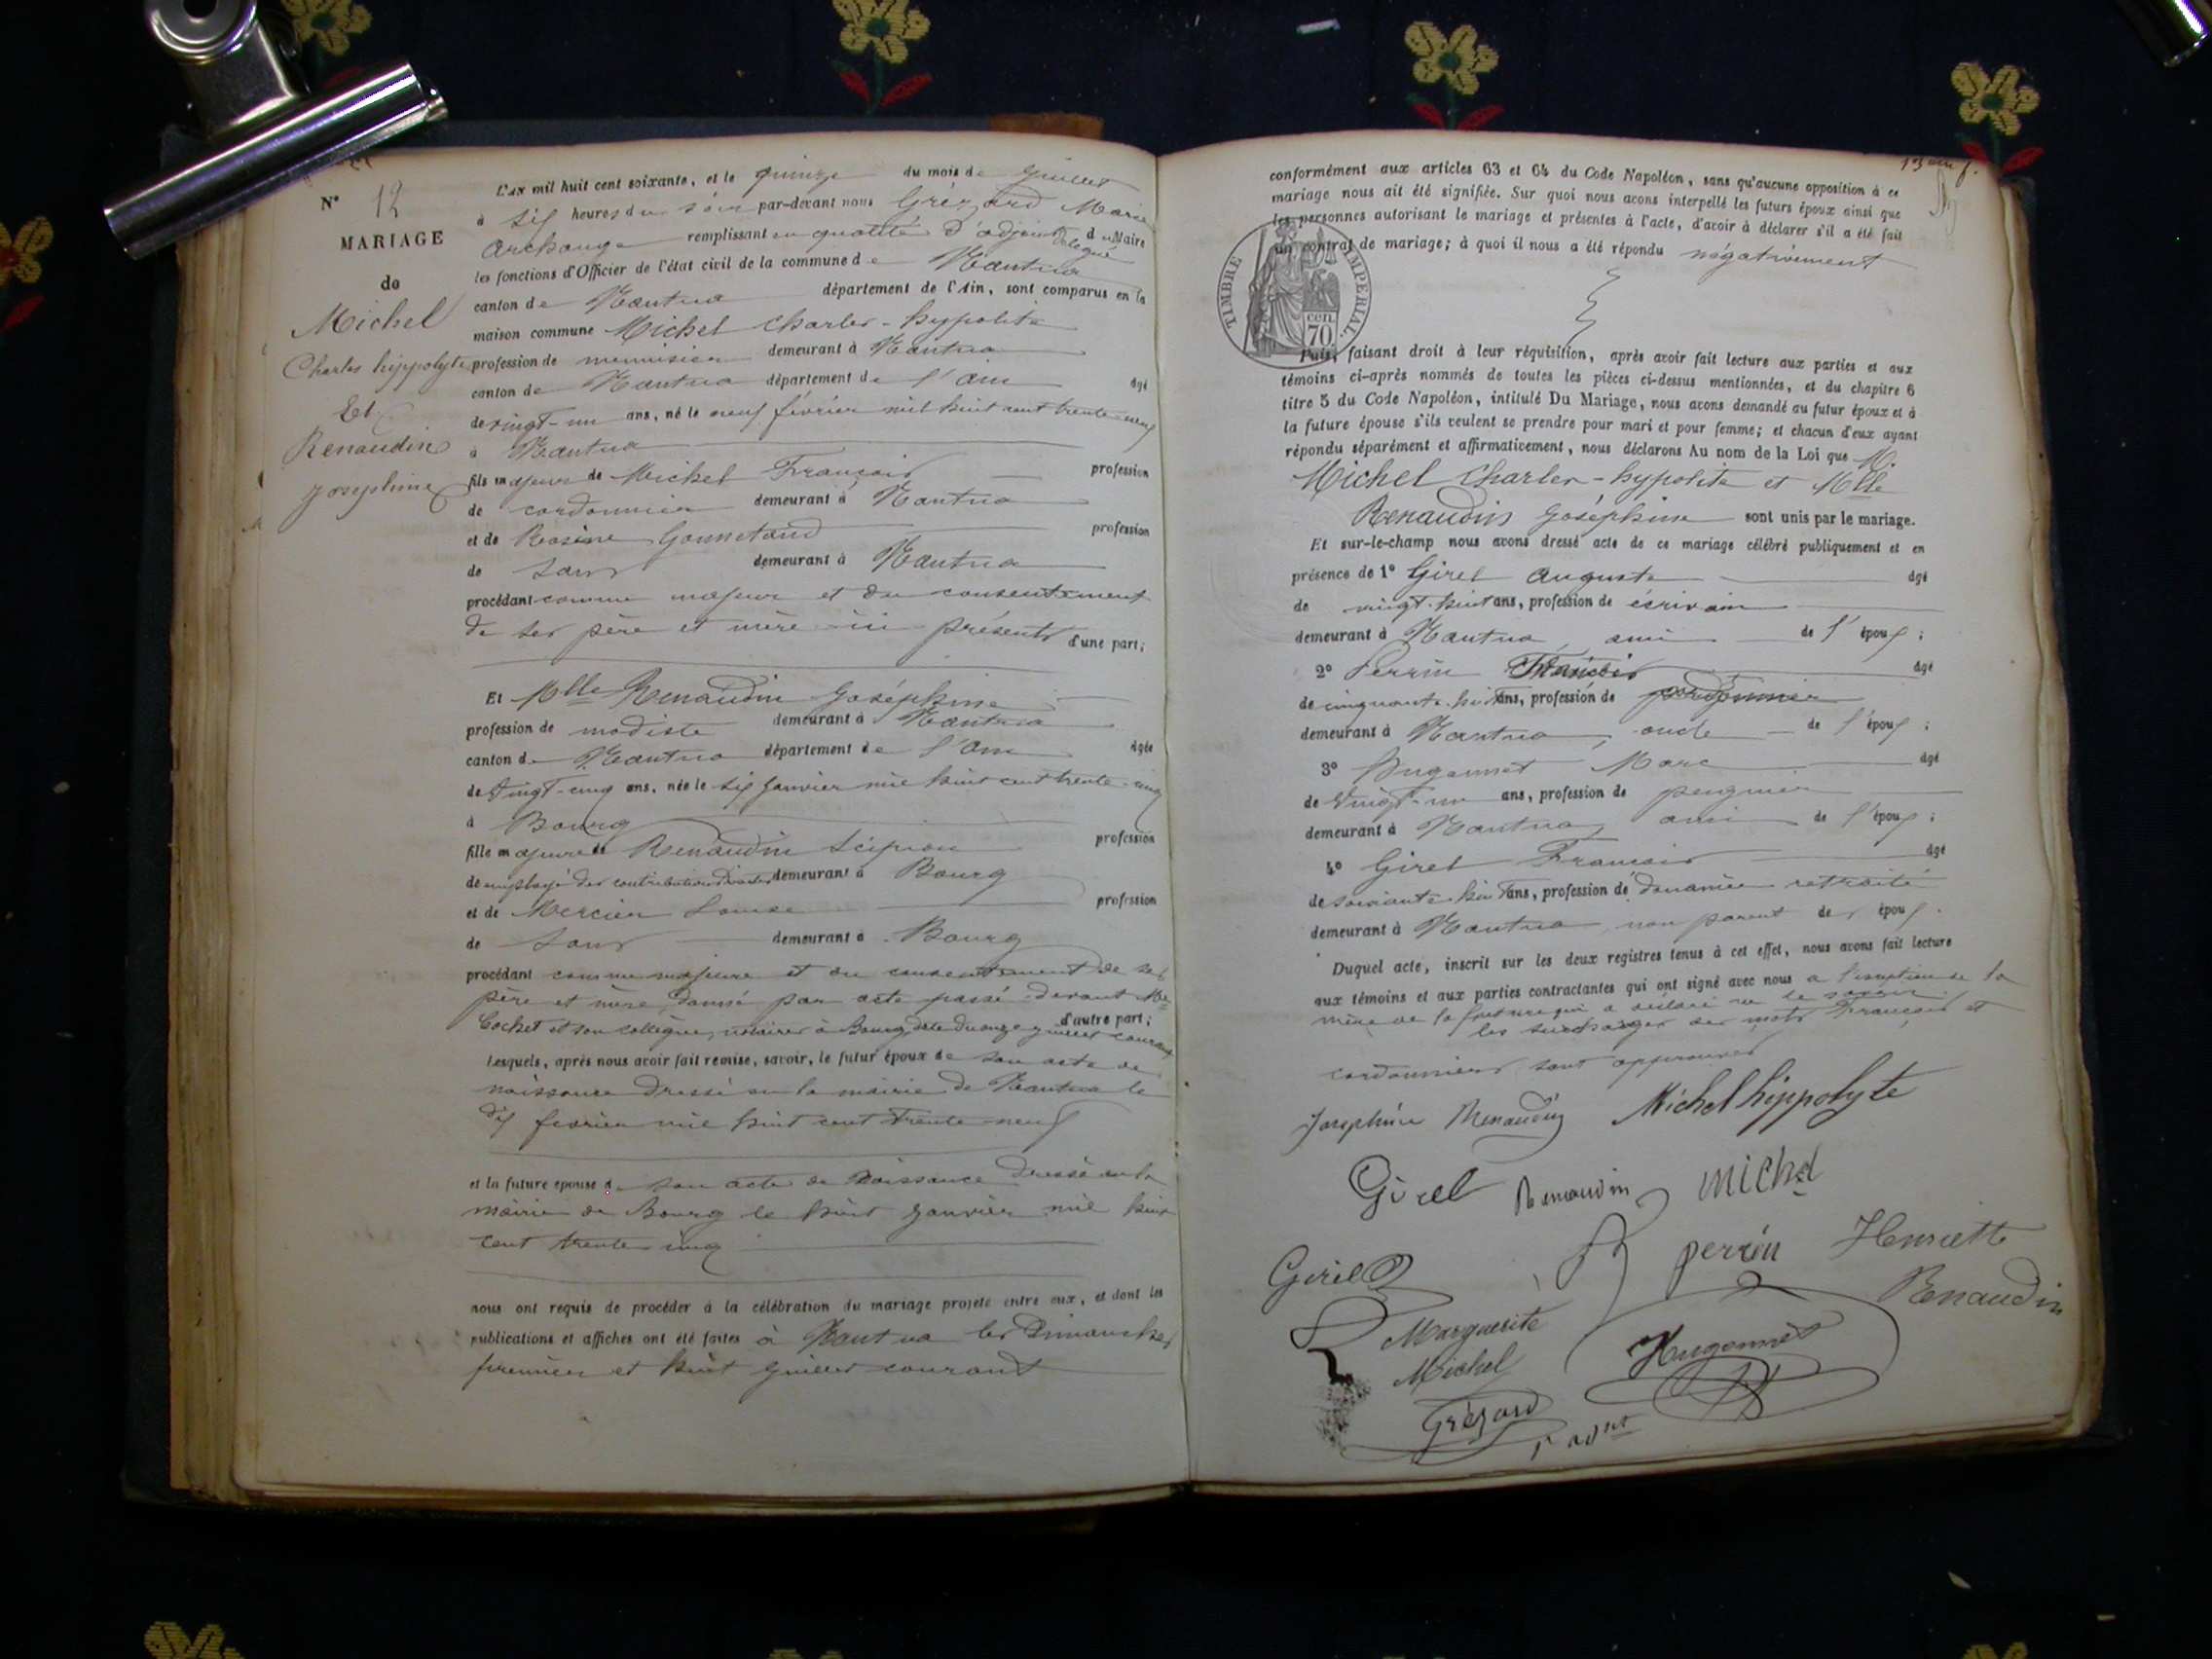 N° 12
MARIAGE
de
Michel
Charles hippolyte
Et
Renaudin
Josephine
L'an mil huit cent soixante, et le quinze du mois de Juillet
à six heures du soir par-devant nous Grézard Marie
Archange remplissant en qualité d'adjoint délégué du Maire
les fonctions d'Officier de l'état civil de la commune de Nantua
canton de Nantua département de l'Ain, sont comparus en la
maison commune Michel Charles-hypolite
profession de menuisier demeurant à Nantua
canton de Nantua département de l'Ain âgé
de vingt-un ans, né le neuf février mil huit cent trente-neuf
à Nantua
fils majeur de Michel François profession
de cordonnier demeurant à Nantua
et de Rosine profession
de sans demeurant à Nantua
procédant comme majeur et du consentement
de ses père et mère ici présents d'une part;
Et Mlle Renaudin Joséphine
profession de modiste demeurant à Nantua
canton de Nantua département de l'Ain âgée
de vingt-cinq ans, née le six Janvier mil huit cent trente-cinq
à Bourg
fille majeure de Renaudin Scipion profession
de employé des contributions directes demeurant à Bourg
et de Mercier Louise profession
de sans demeurant à Bourg
procédant comme majeure et du consentement de ses
père et mère donné par acte passé devant Me
Cochet et son collègue, notaires à Bourg, date du onze Juillet courant d'autre part;
Lesquels, après nous avoir fait remise, savoir, le futur époux de son acte de
naissance dressé en la mairie de Nantua le
dix février mil huit cent trente-neuf
et la future épouse de son acte de naissance dressé en la
mairie de Bourg le huit Janvier mil huit
cent trente cinq
nous ont requis de procéder à la célébration du mariage projeté entre eux, et dont les
publications et affiches ont été faites à Nantua les Dimanches
premier et huit Juillet courant
conformément aux articles 63 et 64 du Code Napoléon, sans qu'aucune opposition à ce
mariage nous ait été signifiée. Sur quoi nous avons interpellé les futurs époux ainsi que
les personnes autorisant le mariage et présentes à l'acte, d'avoir à déclarer s'il a été fait
un contrat de mariage; à quoi il nous a été répondu négativement
TIMBRE IMPERIAL.
cen.
70
Puis, faisant droit à leur réquisition, après avoir fait lecture aux parties et aux
témoins ci-après nommés de toutes les pièces ci-dessus mentionnées, et du chapitre 6
titre 5 du Code Napoléon, intitulé Du Mariage, nous avons demandé au futur époux et à
la future épouse s'ils veulent se prendre pour mari et pour femme; et chacun d'eux ayant
répondu séparément et affirmativement, nous déclarons Au nom de la Loi que M.
Michel Charles-hypolite et Mlle
Renaudin Joséphine sont unis par le mariage.
Et sur-le-champ nous avons dressé acte de ce mariage célébré publiquement et en
présence de 1° Girel Auguste âgé
de vingt-huit ans, profession de écrivain
demeurant à Nantua, ami de l'époux;
2° Perrin François âgé
de cinquante-huit ans, profession de cordonnier
demeurant à Nantua, oncle de l'époux;
3° Hugonnet Marc âgé
de vingt-un ans, profession de peignier
demeurant à Nantua, ami de l'époux;
4° Girel François âgé
de soixante-huit ans, profession de douanier retraité
demeurant à Nantua, non parent des époux.
Duquel acte, inscrit sur les deux registres tenus à cet effet, nous avons fait lecture
aux témoins et aux parties contractantes qui ont signé avec nous a l'exception de la
mère de la future qui a déclaré ne le savoir.
les surcharges des mots François et
cordonnier sont approuvés
Joséphine Renaudin Michel hippolyte
Girel Renaudin Michel
Girel perrin Henriette
Renaudin
Marguerite
Michel Hugonnet
Grézard
1er adjt